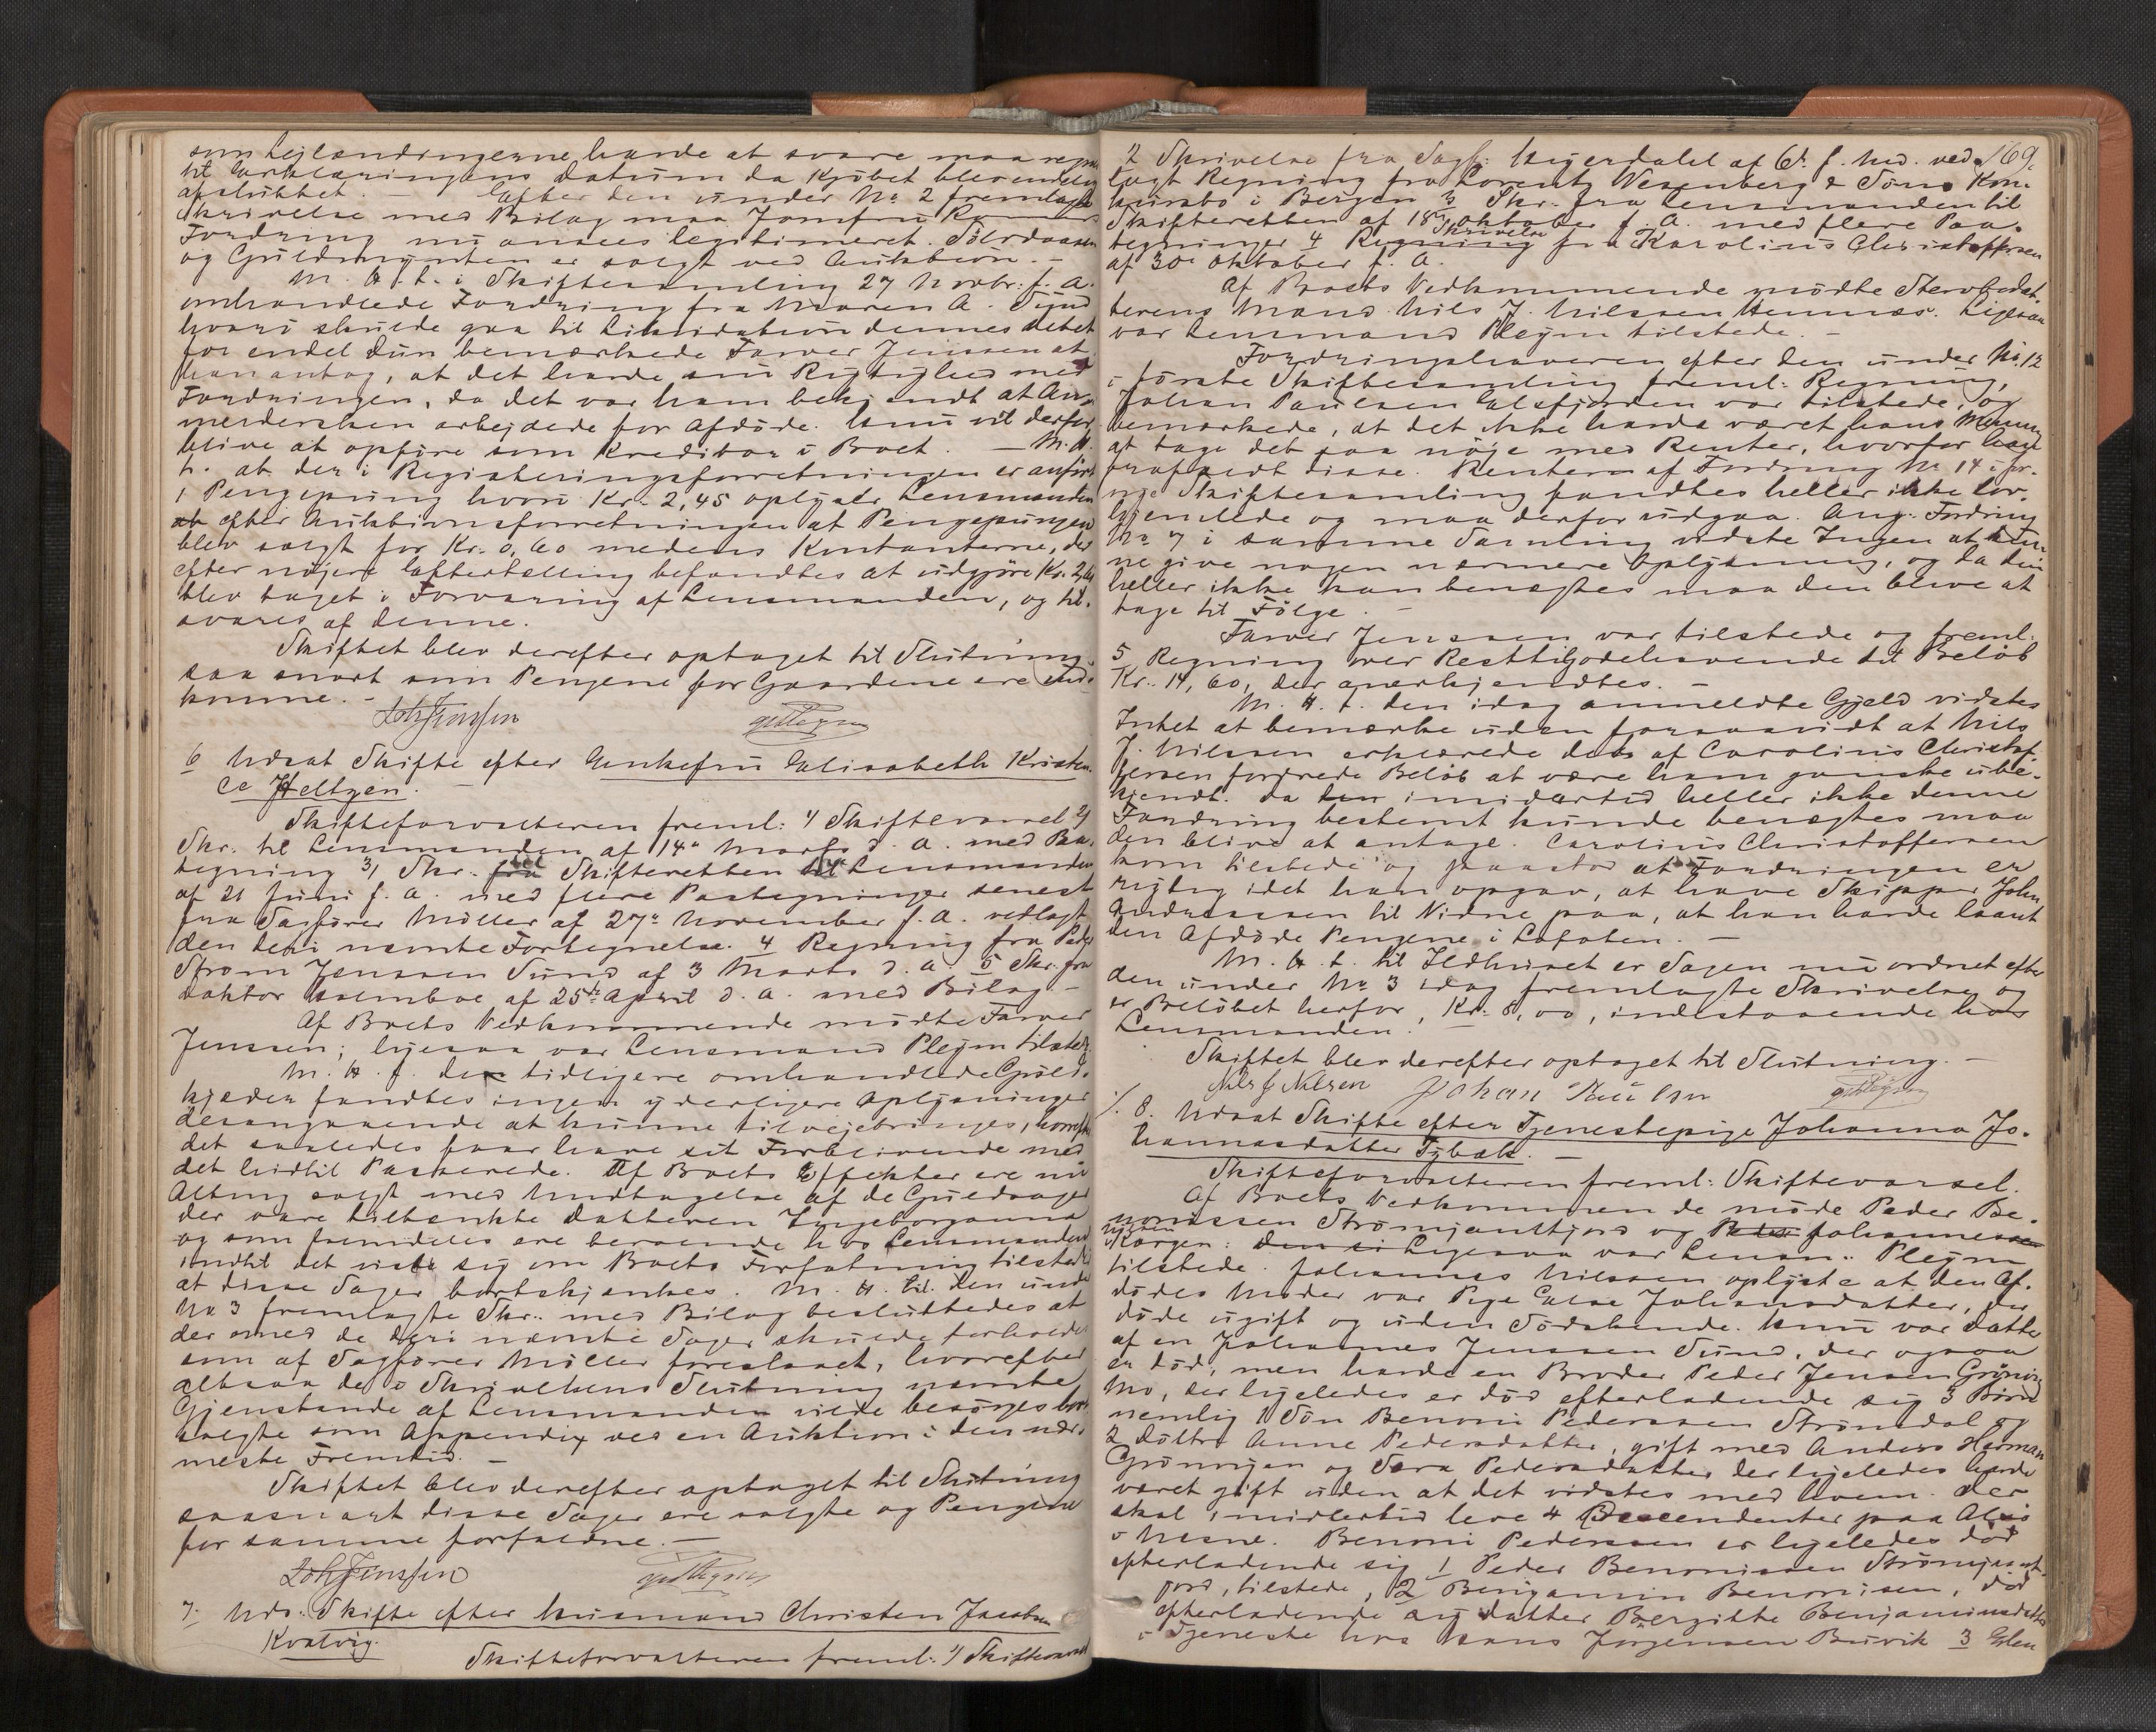 som Lejlændingerne havde at svare maa regnes
til Erklæringens Datum da Kjøbet blev endelig
afsluttet. Efter den under No 2 fremlagte
Skrivelse med Bilag maa Jomfru
Fordring nu ansees legitimeret. Sølvdaasen
og Guldmynten er solgt ved Auktion. -
M. H. t. i Skiftesamling 27 Novbr. f. A.
omhandlede Fordring fra Maren A. Sund
hvori skulde gaa til Likvidation dennes Debet
for endel Dun bemærkede Farver Jenssen at
han antog, at det havde sin Rigtighed med
Fordringen, da det var ham bekjendt at An-
melderken arbejdede for Afdøde. Hun vil derfor
blive at opføre som Kreditor i Boet. - M. H.
t. at der i Registeringsforretningen er anført
1 Pengepung hvori Kr. 2,45 oplyste Lensmanden
efter Auktionsforretningen at Pengepungen
blev solgt for Kr. 0,60 medens Kontanterne, der
efter nøjere Eftertælling befandtes at udgjøre Kr. 2,
blev taget i Forvaring af Lensmanden, og til-
svares af denne.
Skiftet blev derefter optaget til Slutning
saa snart som Pengene for Gaardene ere ind-
komne. -
Joh Jenssen
6 Udsat Skifte efter Enkefru Elisabeth Kristen-
ce Heltzen. -
Skifteforvalteren freml: 1) Skiftevarsel 2)
Skr. til Lensmanden af 14de Marts d. A. med Paa-
tegning 3) Skr. fra Skifteretten til Lensmanden
af 21 Juni f. A. med flere Paategninger senest
fra Sagfører Müller af 27de November f. A. vedlagt
den deri nævnte Fortegnelse. 4 Regning fra Peder
Strøm Jenssen Sund af 3 Marts d. A. 5 Skr. fra
Doktor Holmboe af 25de April d. A. med Bilag. -
Af Boets Vedkommende mødte Farver
Jenssen; ligesaa var Lensmand Pleym tilstede.
M. H. t. den tidligere omhandlede Guld-
kjæder fandtes ingen yderligere Oplysninger
desangaaende at kunne tilvejebringes, hvorefter
det saaledes faar have sit Forblivende med
det hidtil Passerede. Af Boets Effekter ere nu
Alting solgt med Undtagelse af de Guldsager
der vare tiltænkte Datteren Ingeborganna
og som fremdeles ere beroende hos Lensmanden
indtil det viste sig om Boets Forfatning tilstede
at disse Sager bortskjænkes. M. H. til den under
No 3 fremlagte Skr. med Bilag besluttedes at
der med de deri nævnte Sager skulde forholdes
som af Sagfører Müller foreslaaet, hvorefter
altsaa de i Skrivelsens Slutning nævnte
Gjenstande af Lensmanden vilde besørges bort-
solgte som Appendix ved en Auktion i den nær-
meste Fremtid. -
Skiftet blev derefter optaget til Slutning
saasnart disse Sager ere solgte og Pengene
for samme forfaldne. -
Joh Jenssen
7. Uds. Skifte efter Husmand Christen Jacobsen
Kvalvig.
Skifteforvalteren freml: 1) Skiftevarsel
169.
2 Skrivelse fra Sagf: Hejerdahl af 6te f. Md. ved-
lagt Regning fra Lorentz Wesenberg & Søns Kon-
kursbo i Bergen 3 Skr. fra Lensmanden til
Skifteretten af 18de Oktober f. A. med flere Paa-
tegninger 4 Regning Skrivelse fra Karolius Christoffersen
af 30te Oktober f. A.
Af Boets Vedkommende mødte Stervbodat-
terens Mand Nils J. Nilssen Hemnæs. Ligesaa
var Lensmand Pleym tilstede. -
Fordringshaveren efter den under No. 12
i første Skiftesamling freml: Regning,
Johan Paulsen Elsfjorden var tilstede, og
bemærkede, at det ikke havde været hans Mening
at tage det saa nøje med Renter, hvorfor han
frafaldt disse. Renterne af Fordring No 14 i for-
rige Skiftesamling fandtes heller ikke lov-
hjemlede og maa derfor udgaa. Ang. Fordring
No 7 i samme Samling vidste Ingen at kun-
ne give nogen nærmere Oplysning, og da den
heller ikke kan benægtes maa den blive at
tage til Følge. -
Farver Jenssen var tilstede og freml.
5 Regning over Resttilgodehavende til Beløb
Kr. 14,60, der anerkjendtes. -
M. H. t. den idag anmeldte Gjeld vidstes
Intet at bemærke uden forsaavidt at Nils
J. Nilssen erklærede det af Carolius Christof-
fersen fordrede Beløb at være ham ganske ube-
kjendt. Da imidlertid heller ikke denne
Fordring bestemt kunde benægtes maa
den blive at antage. Carolius Christoffersen
kom tilstede og paastod at Fordringen er
rigtig idet han opgav, at have Skipper John
Andreassen til Vidne paa, at han havde laant
den Afdøde Pengene i Lofoten. -
M. H. t. til Ildhuset er Sagen nu ordnet efter
den under No 3 idag fremlagte Skrivelse og
er Beløbet herfor, Kr. 8,00, indestaaende hos
Lensmanden.
Skiftet blev derefter optaget til Slutning. -
Nils J Nilsen Johan Paulsen
8. Udsat Skifte efter Tjenestepige Johanna Jo-
hannesdatter Fybæk. -
Skifteforvalteren freml: Skiftevarsel.
Af Boets Vedkommende møde Peder Be-
nonissen Strømjantfjord og Peder Johannessen
Korgen: Ligesaa var Lensm. Pleym
tilstede. Johannes Nilssen oplyste at den Af-
dødes Moder var Pige Else Johansdatter, der
døde ugift og uden Sødskende. Hun var Datter
af en Johannes Jenssen Sund, der ogsaa
er død, men havde en Broder Peder Jensen
Mo, der ligeledes er død efterladende sig 3 Børn
nemlig 1 Søn Benoni Pederssen Strømdal og
2 Døttre Anne Pedersdatter, gift med Anders Herman
Grønvigen og Sara Pedersdatter der ligeledes havde
været gift uden at det vidstes med hvem. Der
skal imidlertid leve 4 Descendenter paa
i Nesne. Benoni Pederssen er ligeledes død
efterladende sig 1 Peder Benonissen Strømjant-
fjord, tilstede, 2 Benjamin Benonisen, død
efterladende sig Datter Bergitte Benjaminsdatter
i Tjeneste hos Hans Jørgensen Buvik 3